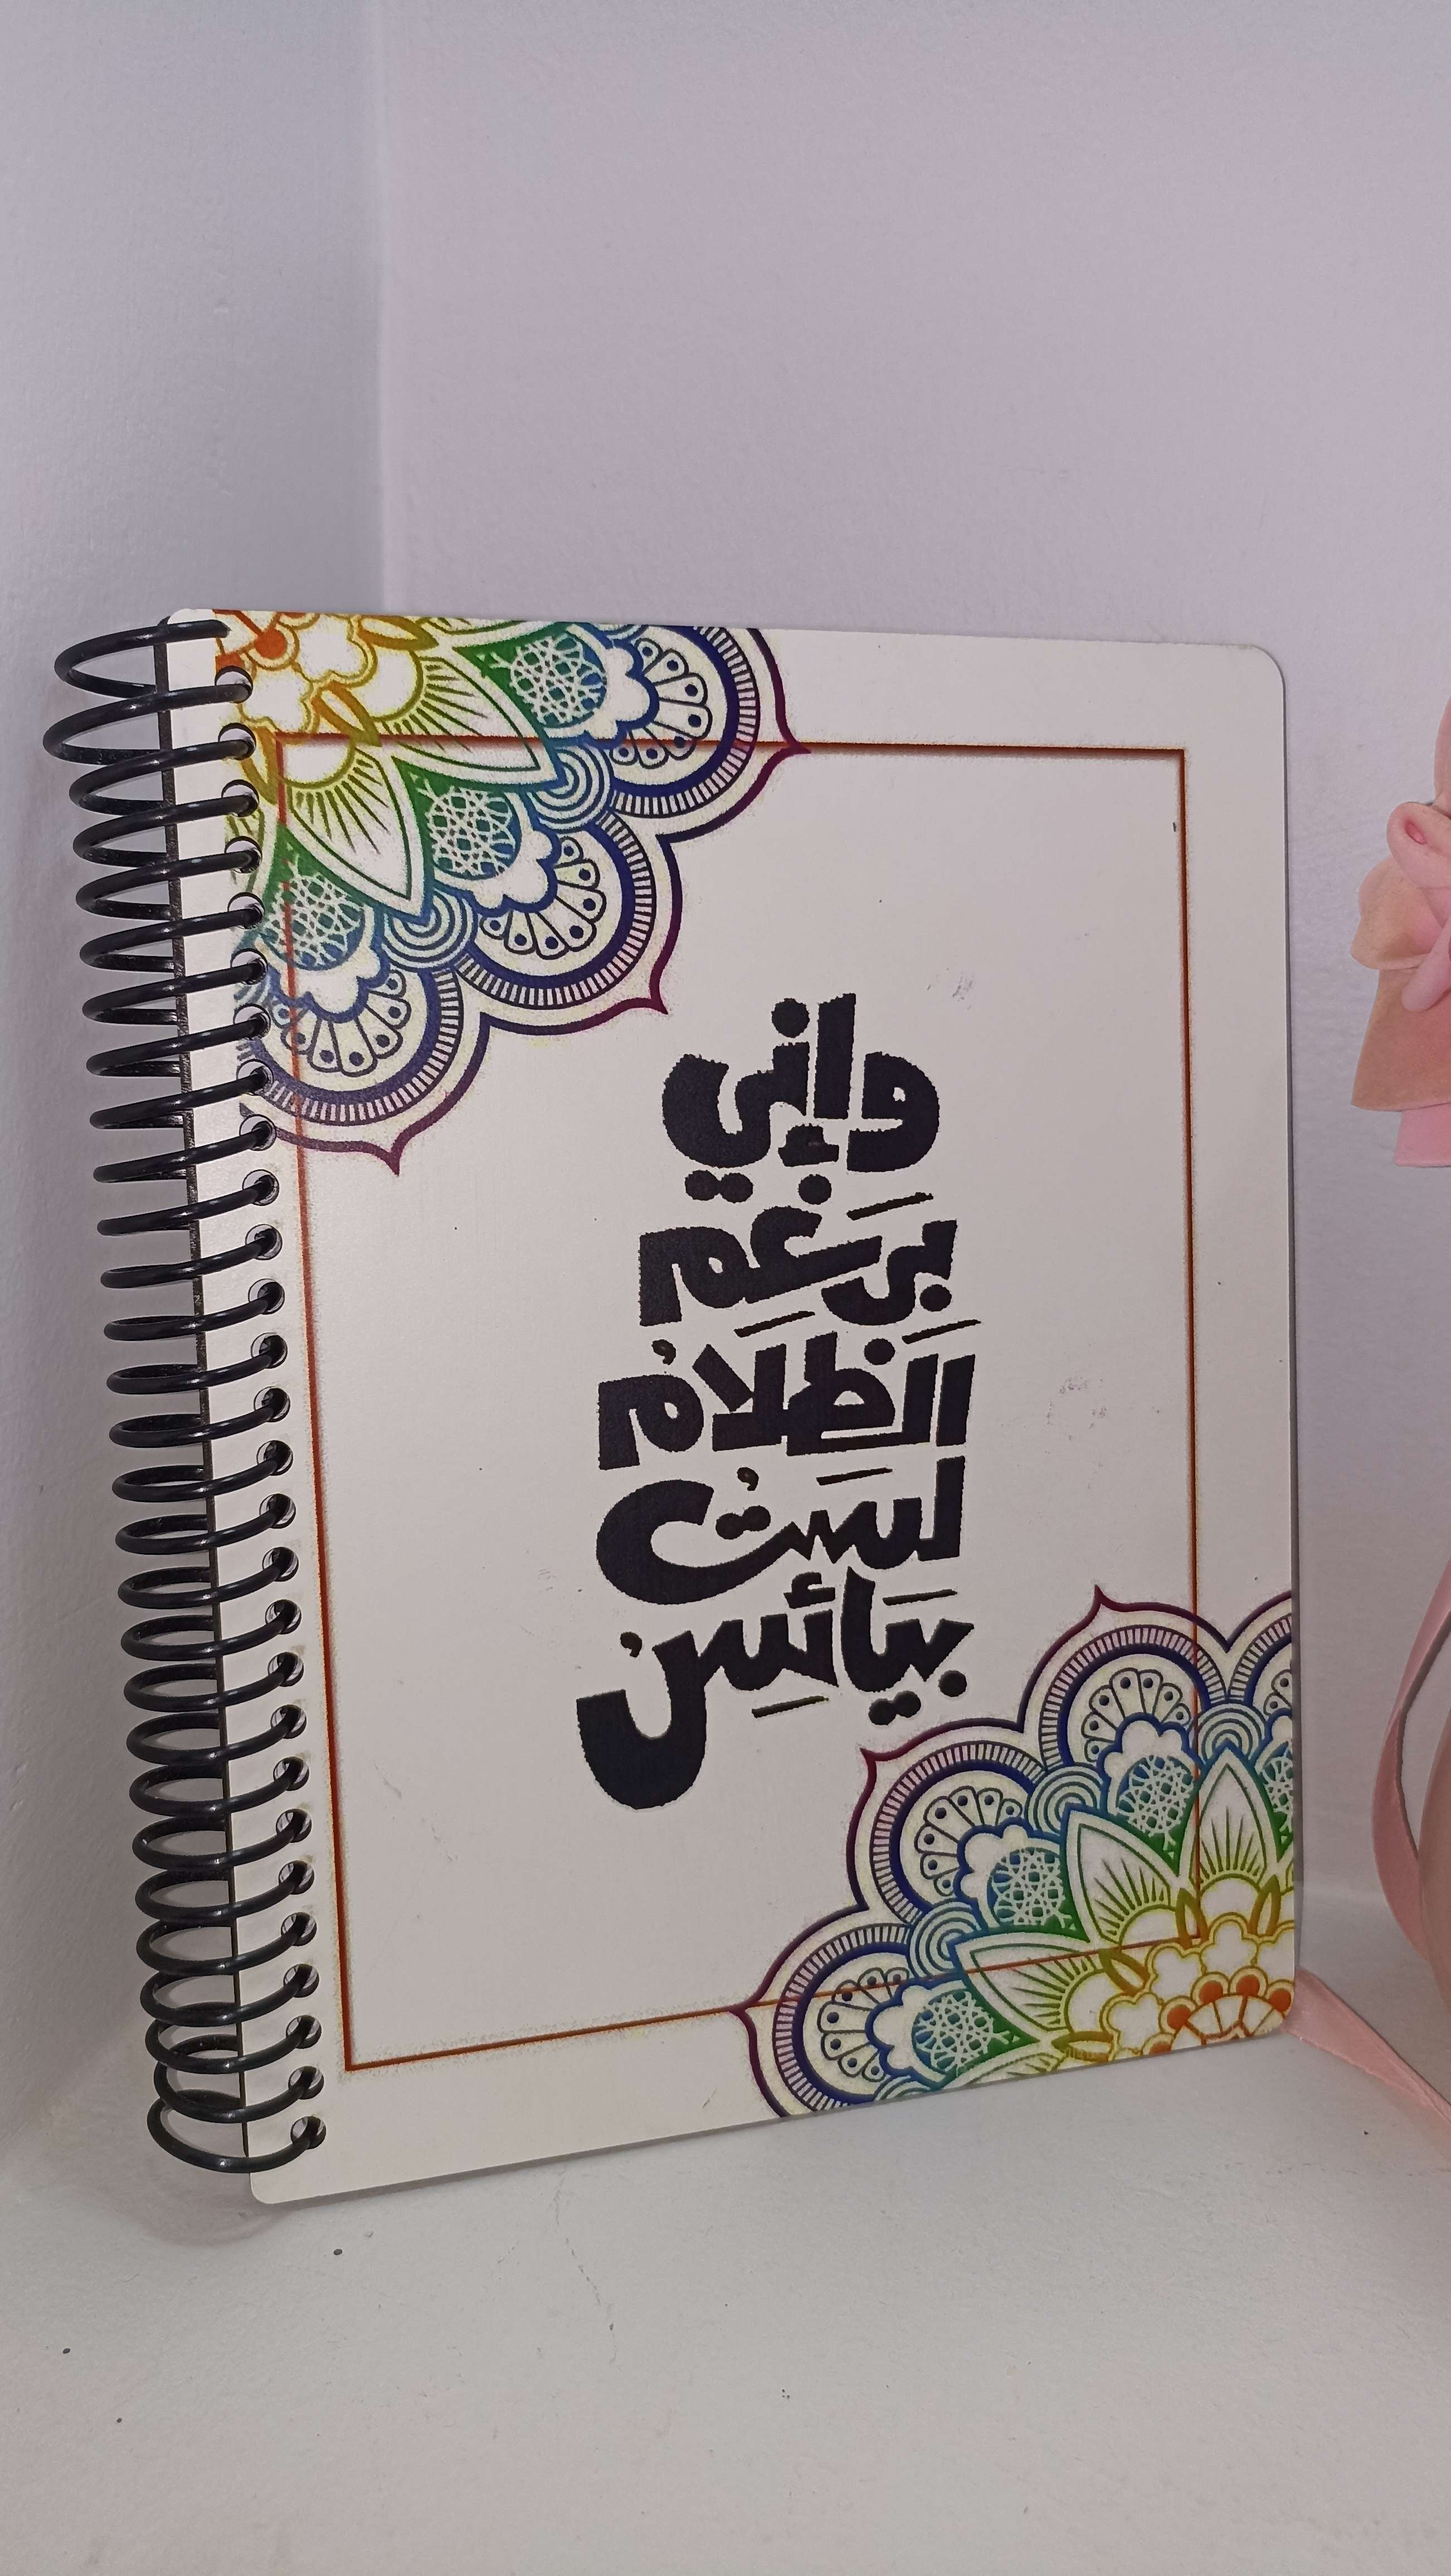 وإني
بَرَغَم
الَظَلامُ
لَستُ
بَيائسِنُ